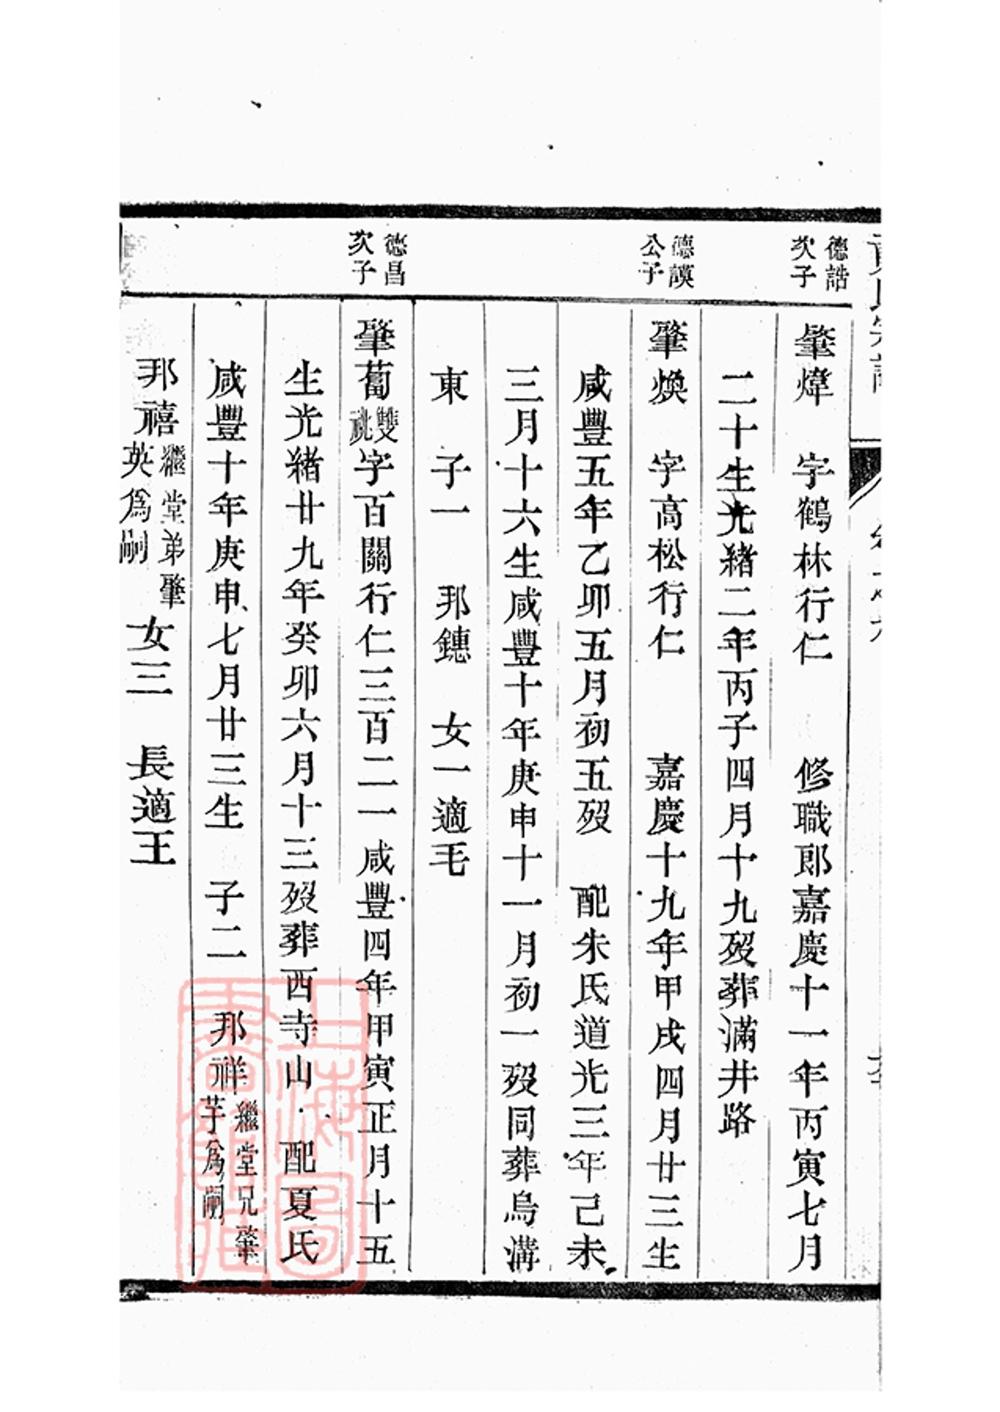 德誥次子
肇煒　字鶴林行仁　　修職郎嘉慶十一年丙寅七月
二十生光緒二年丙子四月十九歿葬滿井路
德謨公子
肇煥　字高松行仁　　嘉慶十九年甲戌四月廿三生
咸豐五年乙卯五月初五歿　配朱氏道光三年己未
三月十六生咸豐十年庚申十一月初一歿同葬烏溝
東　子一　邦鏸　女一適毛
德昌次子
肇蔔雙祧字百關行仁三百二一咸豐四年甲寅正月十五
生光緒廿九年癸卯六月十三歿葬西寺山　配夏氏
咸豐十年庚申七月廿三生　子二　邦祥繼堂兄肇芋為嗣
邦禧繼堂弟肇英為嗣　女三　長適王
上海圖書館藏